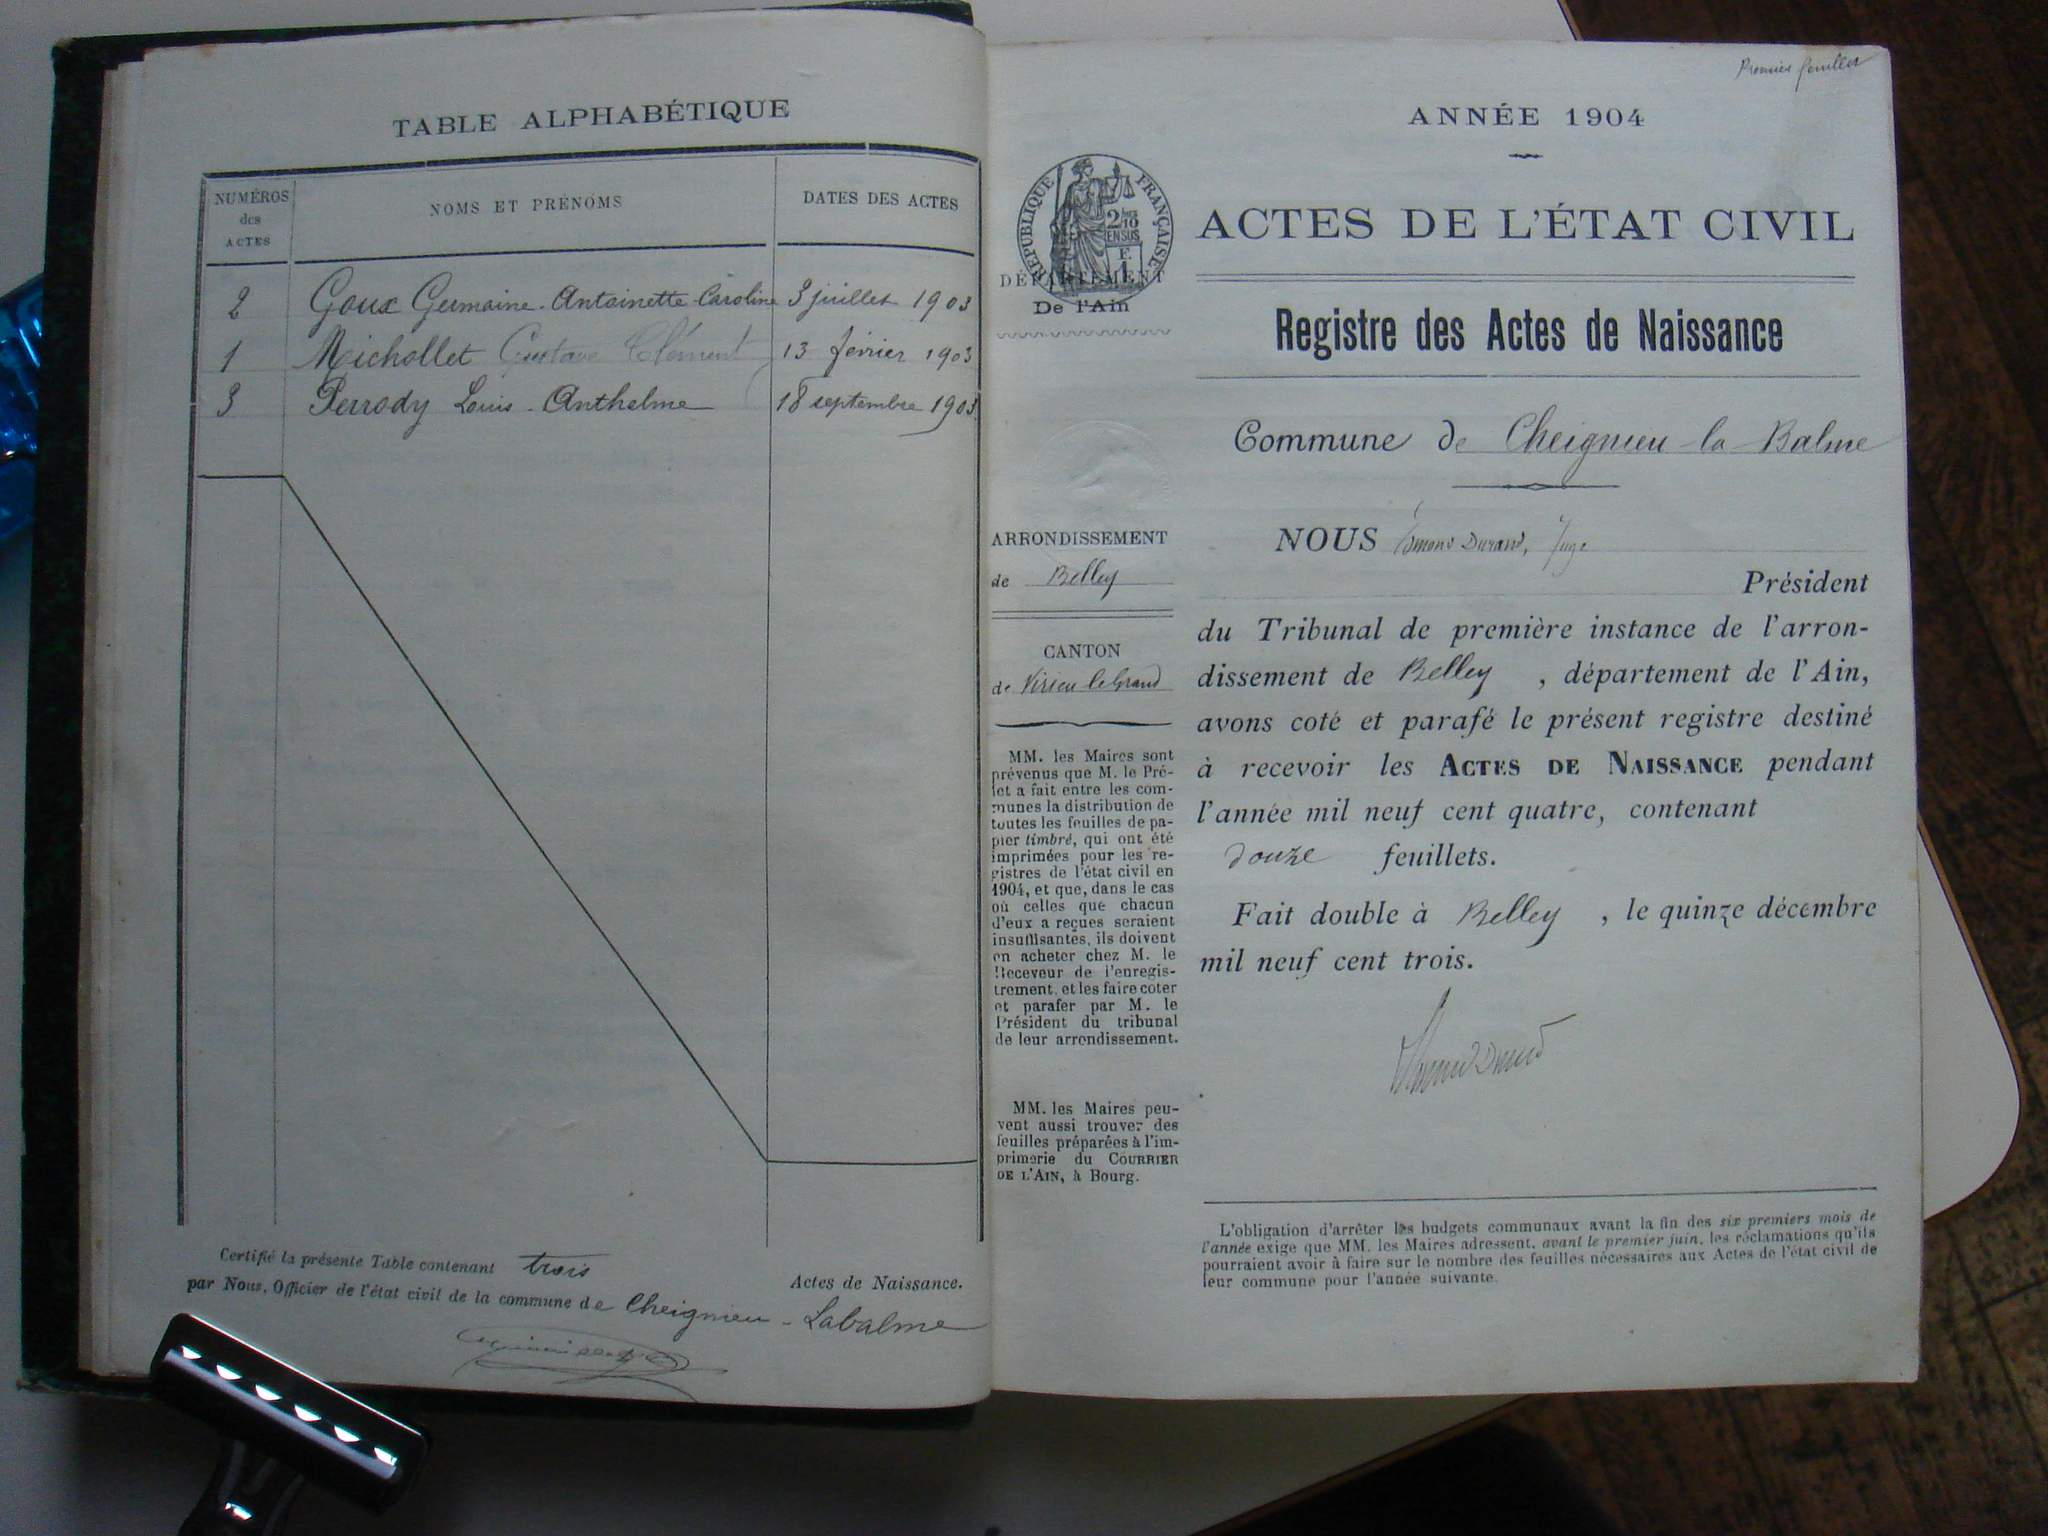 TABLE ALPHABÉTIQUE
NUMÉROS des ACTES
NOMS ET PRÉNOMS
DATES DES ACTES
2 Goux Germaine-Antoinette-Caroline 3 juillet 1903
1 Michollet Gustave Clément 13 février 1903
3 Perrody Louis-Anthelme 18 septembre 1903
Certifié la présente Table contenant trois
Actes de Naissance.
par Nous, Officier de l'état civil de la commune de Cheignieu-Labalme
Premier feuillet
ANNÉE 1904
RÉPUBLIQUE FRANÇAISE
2/10
EN SUS
F.
1
DÉPARTEMENT
De l'Ain
ACTES DE L'ÉTAT CIVIL
Registre des Actes de Naissance
Commune de Cheignieu-la-Balme
ARRONDISSEMENT
de Belley
CANTON
de Virieu le Grand
MM. les Maires sont
prévenus que M. le Pré-
fet a fait entre les com-
munes la distribution de
toutes les feuilles de pa-
pier timbré, qui ont été
imprimées pour les re-
gistres de l'état civil en
1904, et que, dans le cas
où celles que chacun
d'eux a reçues seraient
insuffisantes, ils doivent
en acheter chez M. le
Receveur de l'enregis-
trement, et les faire coter
et parafer par M. le
Président du tribunal
de leur arrondissement.
MM. les Maires peu-
vent aussi trouver des
feuilles préparées à l'im-
primerie du COURRIER
DE L'AIN, à Bourg.
NOUS Durand, Juge
Président
du Tribunal de première instance de l'arron-
dissement de Belley , département de l'Ain,
avons coté et parafé le présent registre destiné
à recevoir les ACTES DE NAISSANCE pendant
l'année mil neuf cent quatre, contenant
douze feuillets.
Fait double à Belley , le quinze décembre
mil neuf cent trois.
L'obligation d'arrêter les budgets communaux avant la fin des six premiers mois de
l'année exige que MM. les Maires adressent, avant le premier juin, les réclamations qu'ils
pourraient avoir à faire sur le nombre des feuilles nécessaires aux Actes de l'état civil de
leur commune pour l'année suivante.